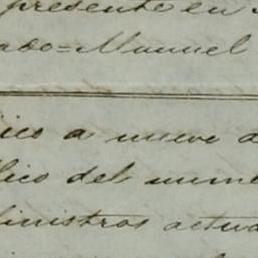 presente en
ado=Manuel
lico a nueve d
lico del nume
inistros actua